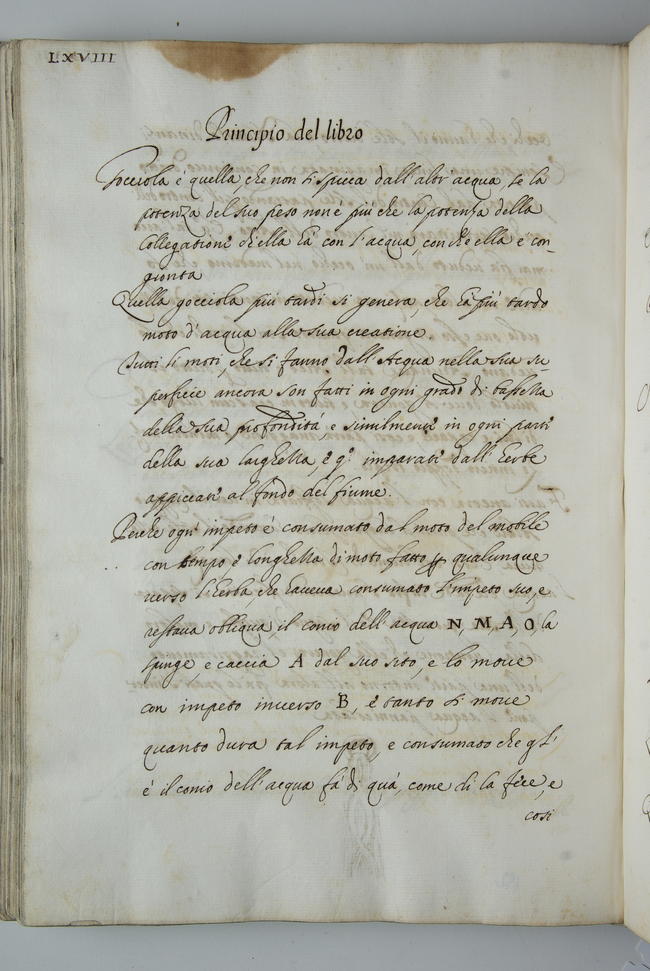 LXVIII
Principio del libro
Gocciola é quella che non si spicca dall'altr'acqua, se la
potenza del suo peso non é piú che la potenza della
Collegatione ch'ella há con l'acqua, con che ella é con-
gionta
Quella gocciola piú tardi si genera, che há piú tardo
moto d'acqua alla sua creatione.
Tutti li moti, che si fanno dall'Acqua nella sua su
perficie ancora son fatti in ogni grado di bassezza
della sua profonditá, e similmente in ogni parte
della sua larghezza, e q.º imparati dall'herbe
appiccate al fondo del fiume.
Perche ogni impeto é consumato dal moto del mobile
con tempo e longhezza di moto fatto qualunque
verso l'herba che haveva consumato l'impeto suo, e
restava obliqua, il conio dell'acqua N, M, A, O, la
spinge, e caccia A dal suo sito, e lo move
con impeto inverso B, e tanto si move
quanto dura tal impeto, e consumato che gl'
é il conio dell'acqua fá di quá, come di la fece, e
cosi